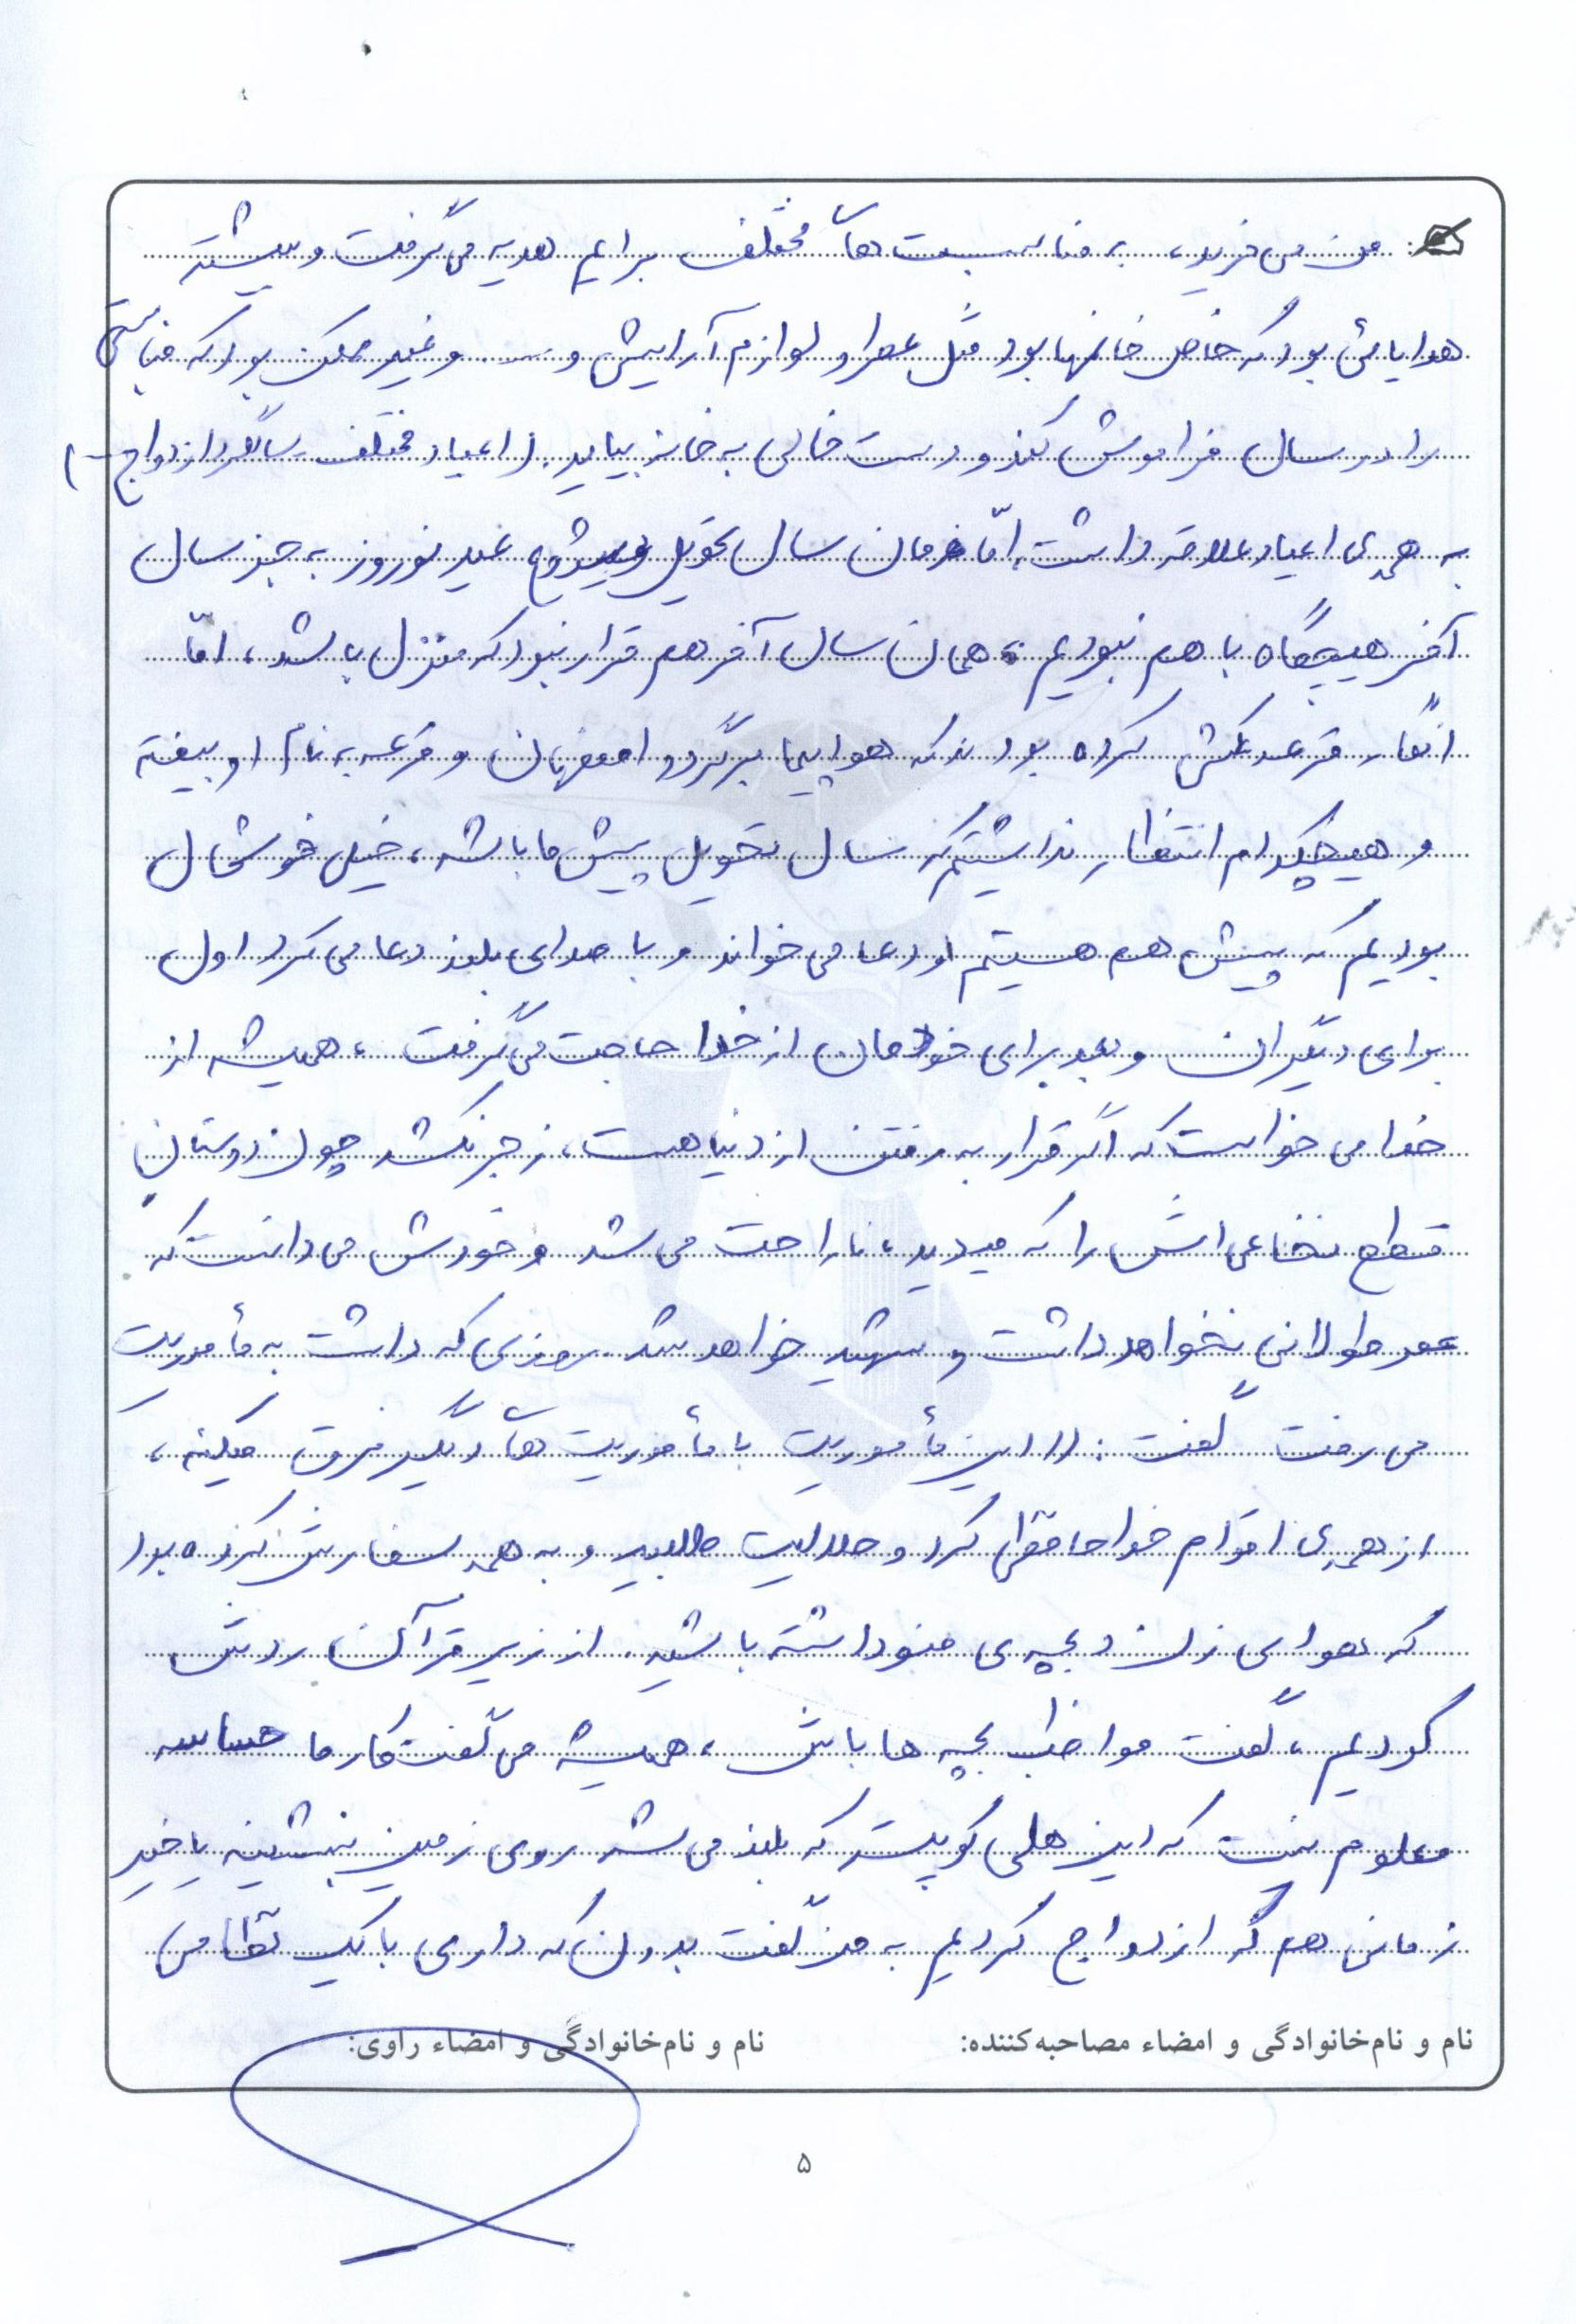 من می خرید، به مناسبت های مختلف برایم هدیه می گرفت و بیشتر
هدایایی بود که خاص خانمها بود مثل عطر و لوازم آرایش و ... و غیر ممکن بود که مناسبتی
را در سال فراموش کند و دست خالی به خانه بیاید. (اعیاد مختلف سالگرد ازدواج ...)
به همه ی اعیاد علاقه داشت، امّا زمان سال تحویل و شروع عید نوروز به جز سال
آخر هیچگاه با هم نبودیم، همان سال آخر هم قرار نبود که منزل باشد، امّا
انگار قرعه کشی کرده بودند که هواپیما برگردد اصفهان و قرعه به نام او بیفته
و هیچکدام انتظار نداشتیم که سال تحویل پیش ما باشه، خیلی خوشحال
بودیم که پیش هم هستیم او دعا می خواند و با صدای بلند دعا می کرد اول
برای دیگران و بعد برای خودمان از خدا حاجت می گرفت، همیشه از
خدا می خواست که اگر قرار به رفتن از دنیا هست، زجر نکشد چون دوستان
قطع نخاعی اش را که میدید، ناراحت می شد و خودش می دانست که
عمر طولانی نخواهد داشت و شهید خواهد شد. روزی که داشت به مأموریت
می رفت گفت: «این مأموریت با مأموریت های دیگر فرق میکنه،
از همه ی اقوام خداحافظی کرد و حلالیت طلبید و به همه سفارش کرده بود
که هوای زن و بچه ی منو داشته باشید. از زیر قرآن ردش
کردیم، گفت مواظب بچه ها باش، همیشه می گفت کار ما حساسه
معلوم نیست که این هلی کوپتر که بلند می شه روی زمین بنشینه یا خیر
زمانی هم که ازدواج کردیم به من گفت بدون که داری با یک نظامی
نام و نام‌خانوادگی و امضاء مصاحبه‌کننده: نام و نام‌خانوادگی و امضاء راوی:
۵